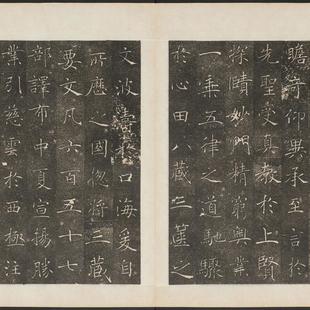 瞻奇仰異承至言於
先聖受真教於上賢
探賾妙門精窮奧業
一乘五律之道馳驟
於心田八藏三篋之
文波濤於口海爰自
所歷之國惣將三藏
要文凡六百五十七
部譯布中夏宣揚勝
業引慈雲於西極注